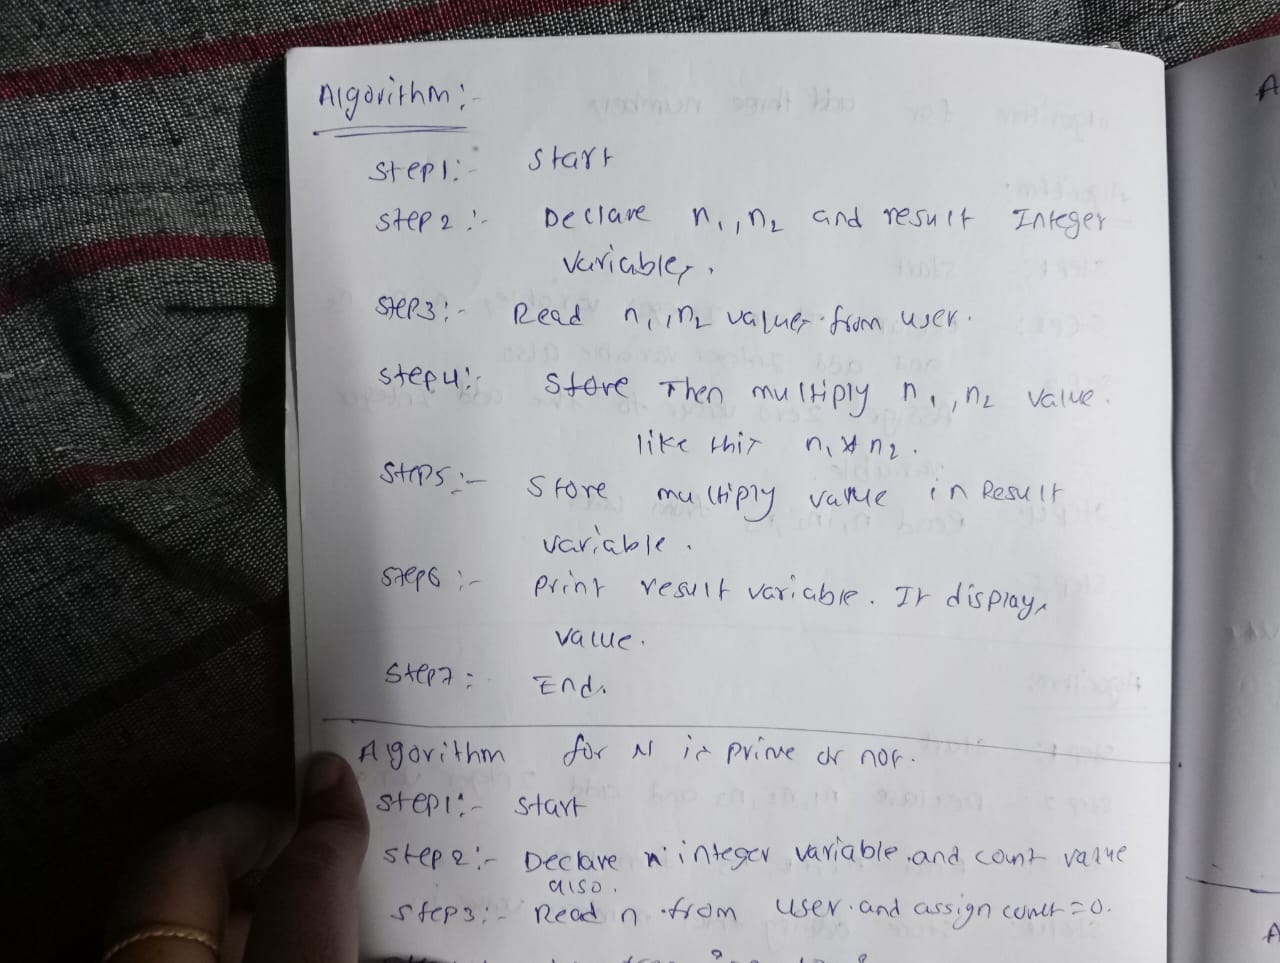 Algorithm:-
Step1:- Start
Step 2:- Declare n1, n2 and result Integer
variables.
Step3:- Read n1, n2 values from user.
Step4:- Store Then multiply n1, n2 value.
like this n1 * n2.
Step5:- Store multiply value in Result
variable.
Step6:- print result variable. It displays
value.
Step7:- End.
Algorithm for N is prime or not.
Step1:- Start
Step2:- Declare n integer variable and count value
also.
Step3:- Read n from user and assign count=0.